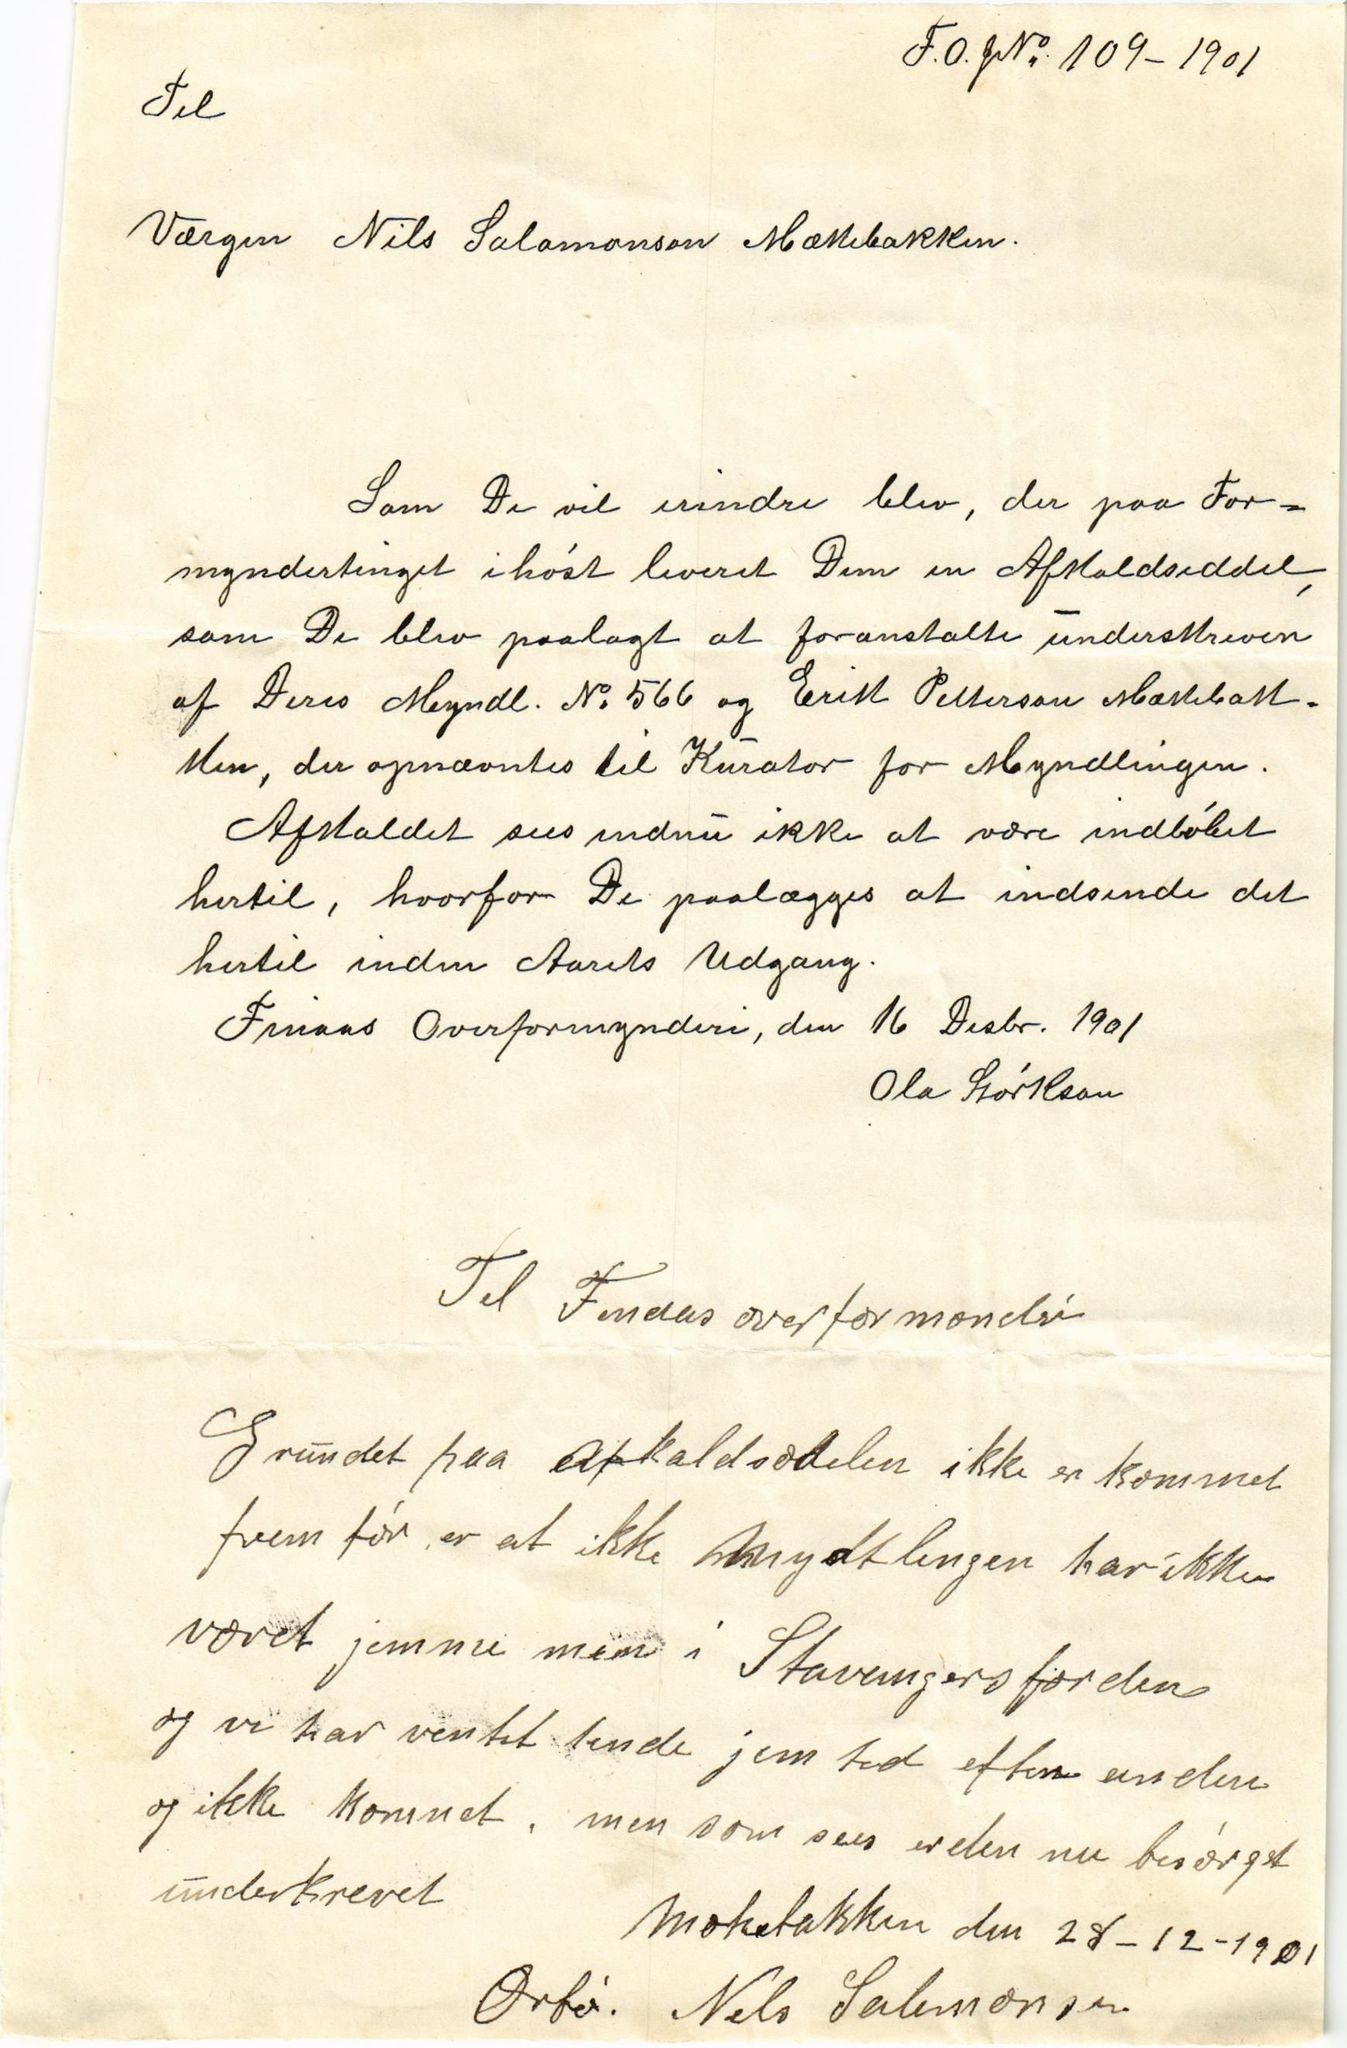 F.O. J№. 109-1901
Til
Værgen Nils Salamonson Mækkebakken.
Som De vil erindre blev, der paa For=
myndertinget ihøst leveret Dem en Afkaldseddel,
som De blev paalagt at foranstalte underskreven
af Deres Myndl. No. 566 og Erik Petterson Mækkebak-
ken, der opnævntes til Kurator for Myndlingen.
Afkaldet sees endnu ikke at være indløbet
hertil, hvorfor De paalægges at indsende det
hertil inden Aarets Udgang.
Finaas Overformynderi, den 16 Desbr. 1901
Ola Størkson
Til Findas overformonderi
Grundet paa afkaldsedelen ikke er kommet
frem før, er at ikke myndtlingen har ikke
været jemme men i Stavangersfjorden
og vi har ventet hende jem ted efter anden
og ikke kommet, men som sees er den nu besørget
underkrevet
Mökebakken den 28-12-1901
Ørbø. Nels Salemonsen